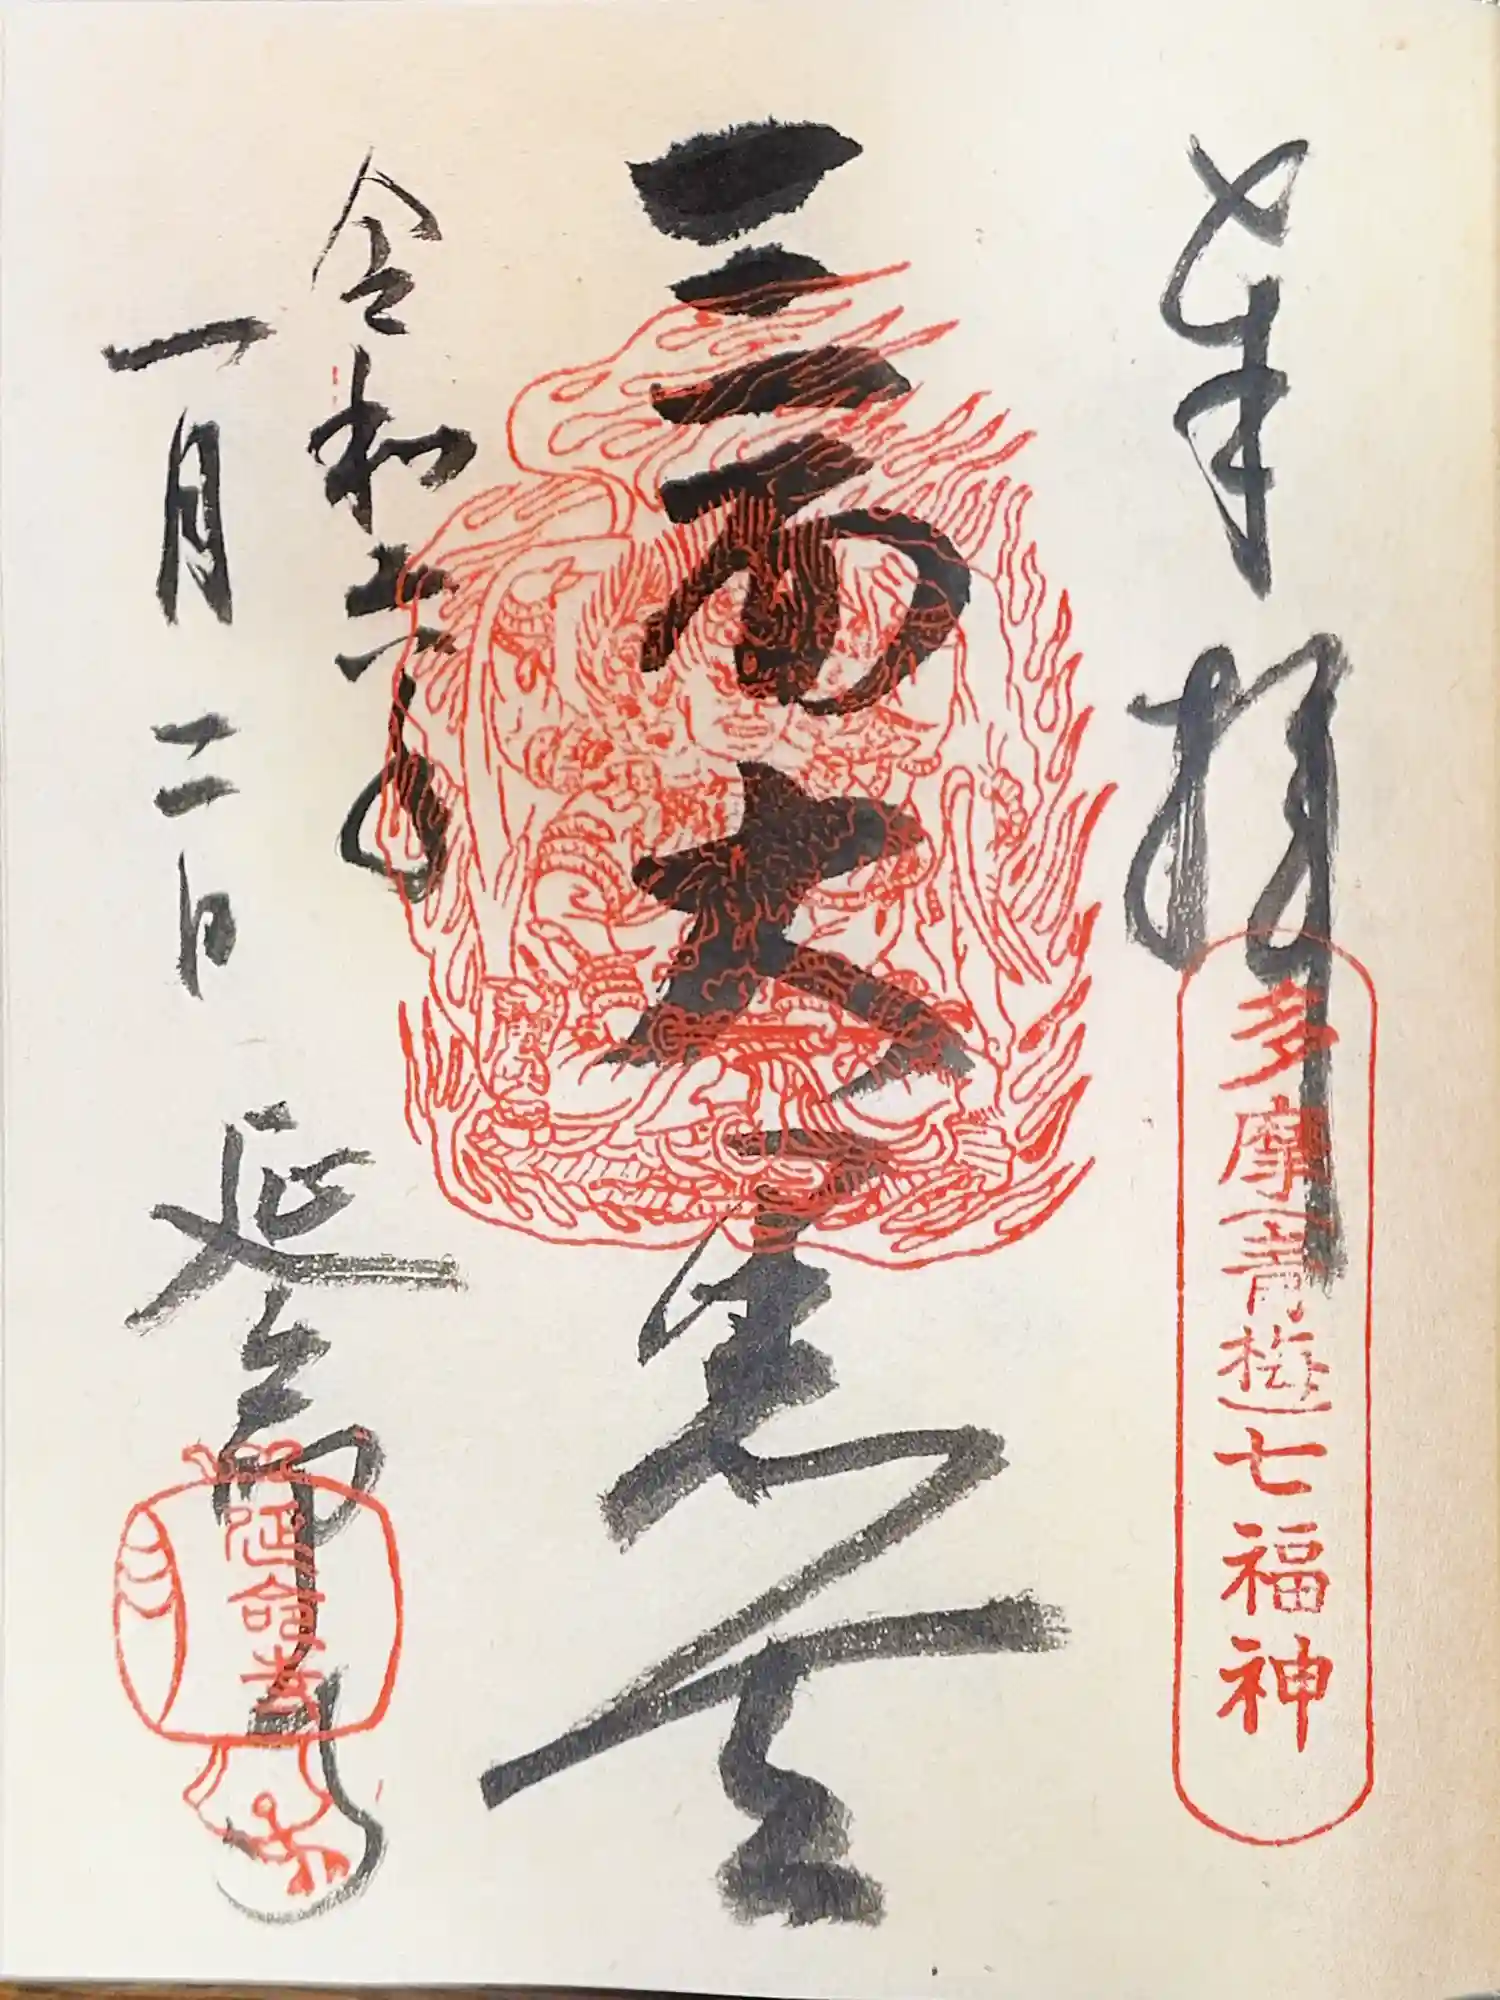 奉拝
多摩青梅七福神
三面大黒天
令和六年
一月二日
延命寺
延命寺